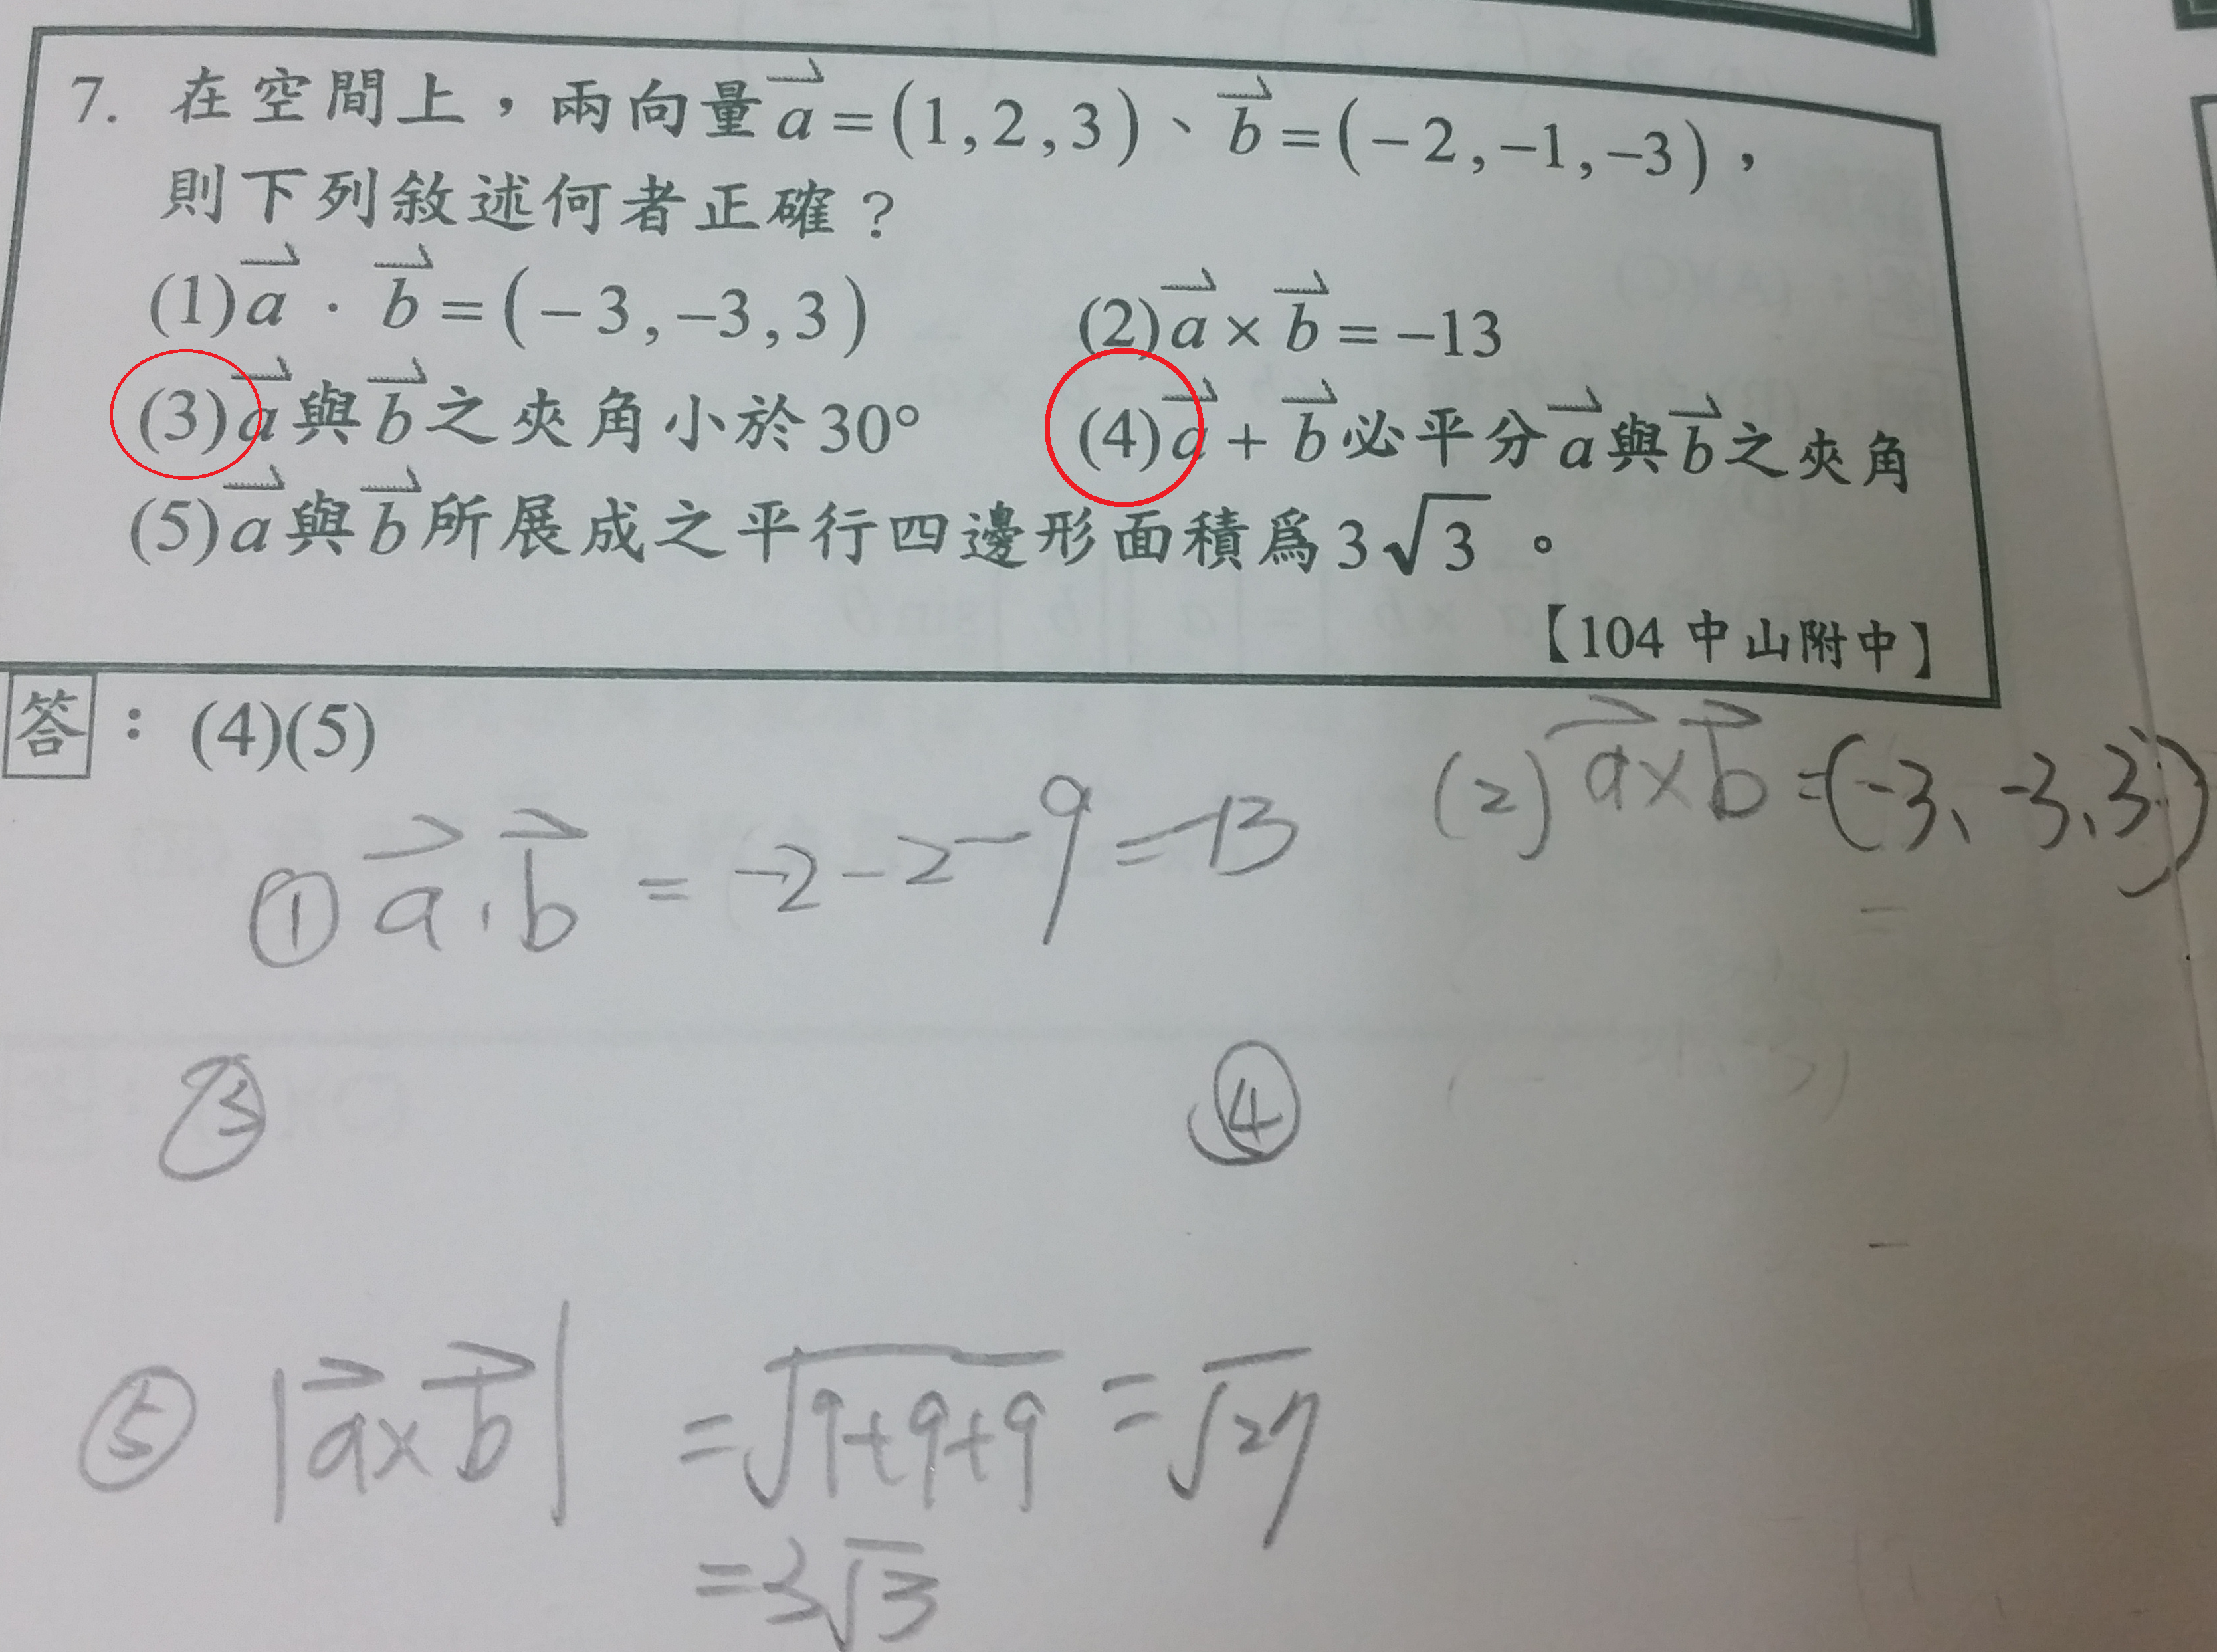 7. 在空間上，兩向量a⃗=(1,2,3)、b⃗=(-2,-1,-3)，
則下列敘述何者正確？
(1)a⃗·b⃗=(-3,-3,3) (2)a⃗×b⃗=-13
(3)a⃗與b⃗之夾角小於30° (4)a⃗+b⃗必平分a⃗與b⃗之夾角
(5)a⃗與b⃗所展成之平行四邊形面積為3√3。
【104 中山附中】
答：(4)(5)
(2) a⃗×b⃗=(-3、-3、3)
① a⃗·b⃗ = -2-2-9=-13
③ ④
⑤ |a⃗×b⃗| = √9+9+9 = √27
=3√3